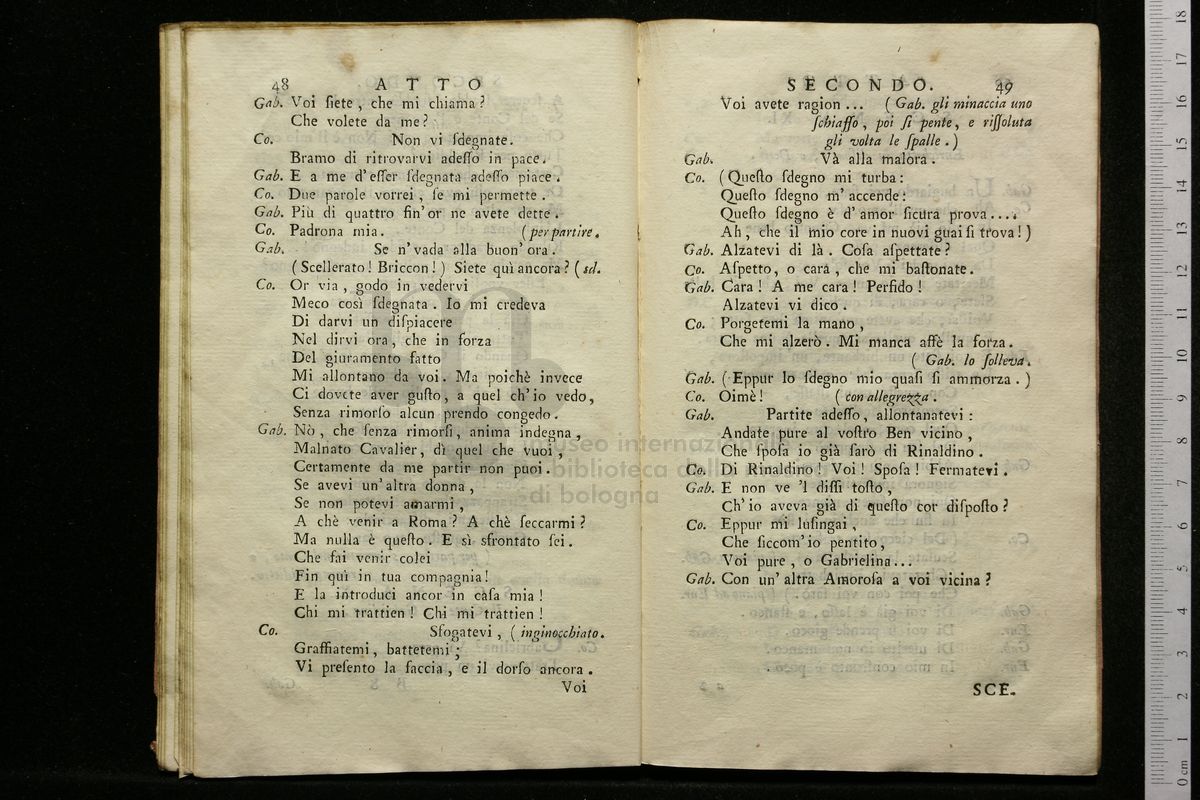 48 ATTO
Gab. Voi ſiete, che mi chiama?
Che volete da me?
Co. Non vi ſdegnate.
Bramo di ritrovarvi adeſſo in pace.
Gab. E a me d'eſſer ſdegnata adeſſo piace.
Co. Due parole vorrei, ſe mi permette.
Gab. Più di quattro fin'or ne avete dette.
Co. Padrona mia. (per partire.
Gab. Se n'vada alla buon'ora.
(Scellerato! Briccon!) Siete quì ancora? (sd.
Co. Or via, godo in vedervi
Meco così ſdegnata. Io mi credeva
Di darvi un diſpiacere
Nel dirvi ora, che in forza
Del giuramento fatto
Mi allontano da voi. Ma poichè invece
Ci dovete aver guſto, a quel ch'io vedo,
Senza rimorſo alcun prendo congedo.
Gab. Nò, che ſenza rimorſi, anima indegna,
Malnato Cavalier, dì quel che vuoi,
Certamente da me partir non puoi.
Se avevi un'altra donna,
Se non potevi amarmi,
A chè venir a Roma? A chè ſeccarmi?
Ma nulla è queſto. E sì sfrontato ſei.
Che fai venir colei
Fin quì in tua compagnia!
E la introduci ancor in caſa mia!
Chi mi trattien! Chi mi trattien!
Co. Sfogatevi, (inginocchiato.
Graffiatemi, battetemi;
Vi preſento la faccia, e il dorſo ancora.
Voi
SECONDO. 49
Voi avete ragion... (Gab. gli minaccia uno
ſchiaffo, poi ſi pente, e riſſoluta
gli volta le ſpalle.)
Gab. Và alla malora.
Co. (Queſto ſdegno mi turba:
Queſto ſdegno m'accende:
Queſto ſdegno è d'amor ſicura prova....
Ah, che il mio core in nuovi guai ſi trova!)
Gab. Alzatevi di là. Coſa aſpettate?
Co. Aſpetto, o cara, che mi baſtonate.
Gab. Cara! A me cara! Perfido!
Alzatevi vi dico.
Co. Porgetemi la mano,
Che mi alzerò. Mi manca affè la forza.
(Gab. lo ſolleva.
Gab. (Eppur lo ſdegno mio quaſi ſi ammorza.)
Co. Oimè! (con allegrezza.
Gab. Partite adeſſo, allontanatevi:
Andate pure al voſtro Ben vicino,
Che ſpoſa io già ſarò di Rinaldino.
Co. Di Rinaldino! Voi! Spoſa! Fermatevi.
Gab. E non ve 'l diſſi toſto,
Ch'io aveva già di queſto cor diſpoſto?
Co. Eppur mi luſingai,
Che ſiccom'io pentito,
Voi pure, o Gabrielina...
Gab. Con un'altra Amoroſa a voi vicina?
SCE.
museo internazionale
biblioteca della
di bologna